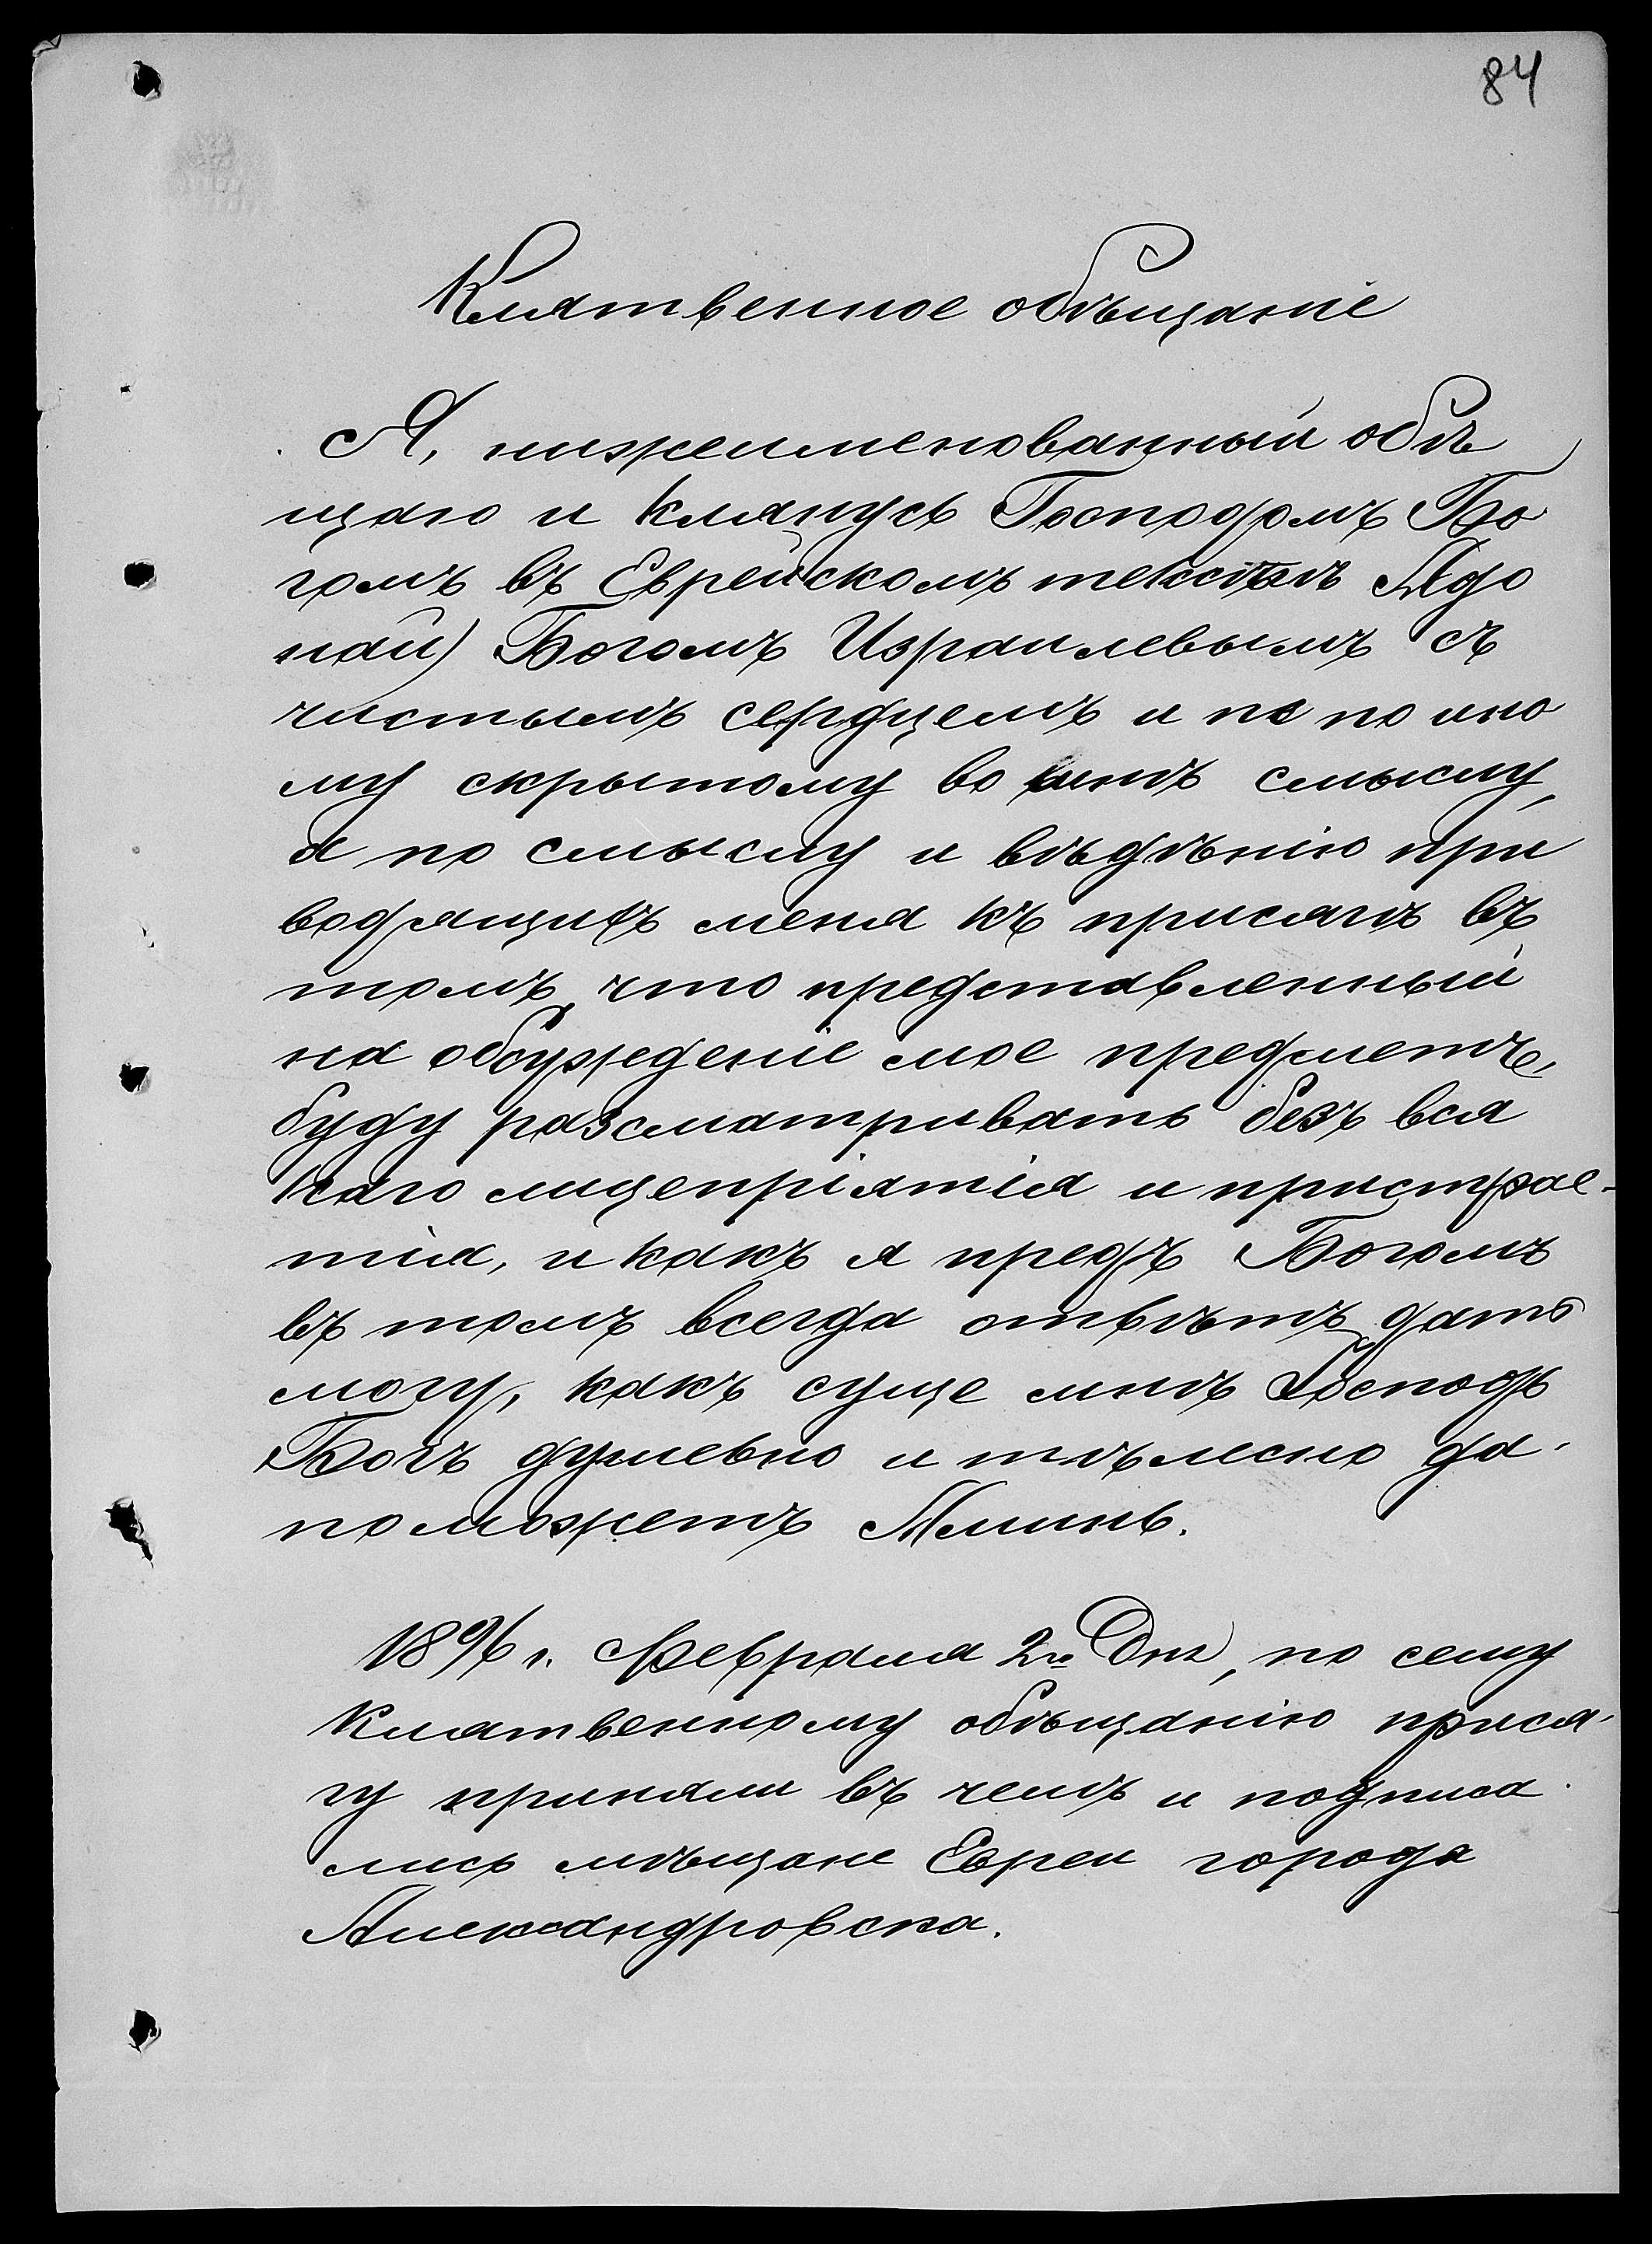 84
Клятвенное обѣщаніе
Я, нижеименованный обѣ
щаю и клянусь Господомъ Бо
гомъ въ Еврейскомъ текстѣ Адо
най) Богомъ Израилевымъ съ
чистымъ сердцемъ и не по ино
му скрытому во мнѣ смыслу,
а по смыслу и вѣдѣнію при
водящихъ меня къ присягѣ въ
томъ, что представленный
на обсужденіе мое предметъ,
буду разсматривать безъ вся
каго лицепріятія и пристрас-
тія, и какъ я предъ Богомъ
въ томъ всегда отвѣтъ дать
могу, какъ суще мнѣ Господь
Богъ душевно и тѣлесно да-
поможетъ Аминь.
1896 г. Февраля 2го Дня, по сему
клятвенному обѣщанію прися-
гу приняли въ чемъ и подписа-
лись мѣщане Евреи города
Александровска.